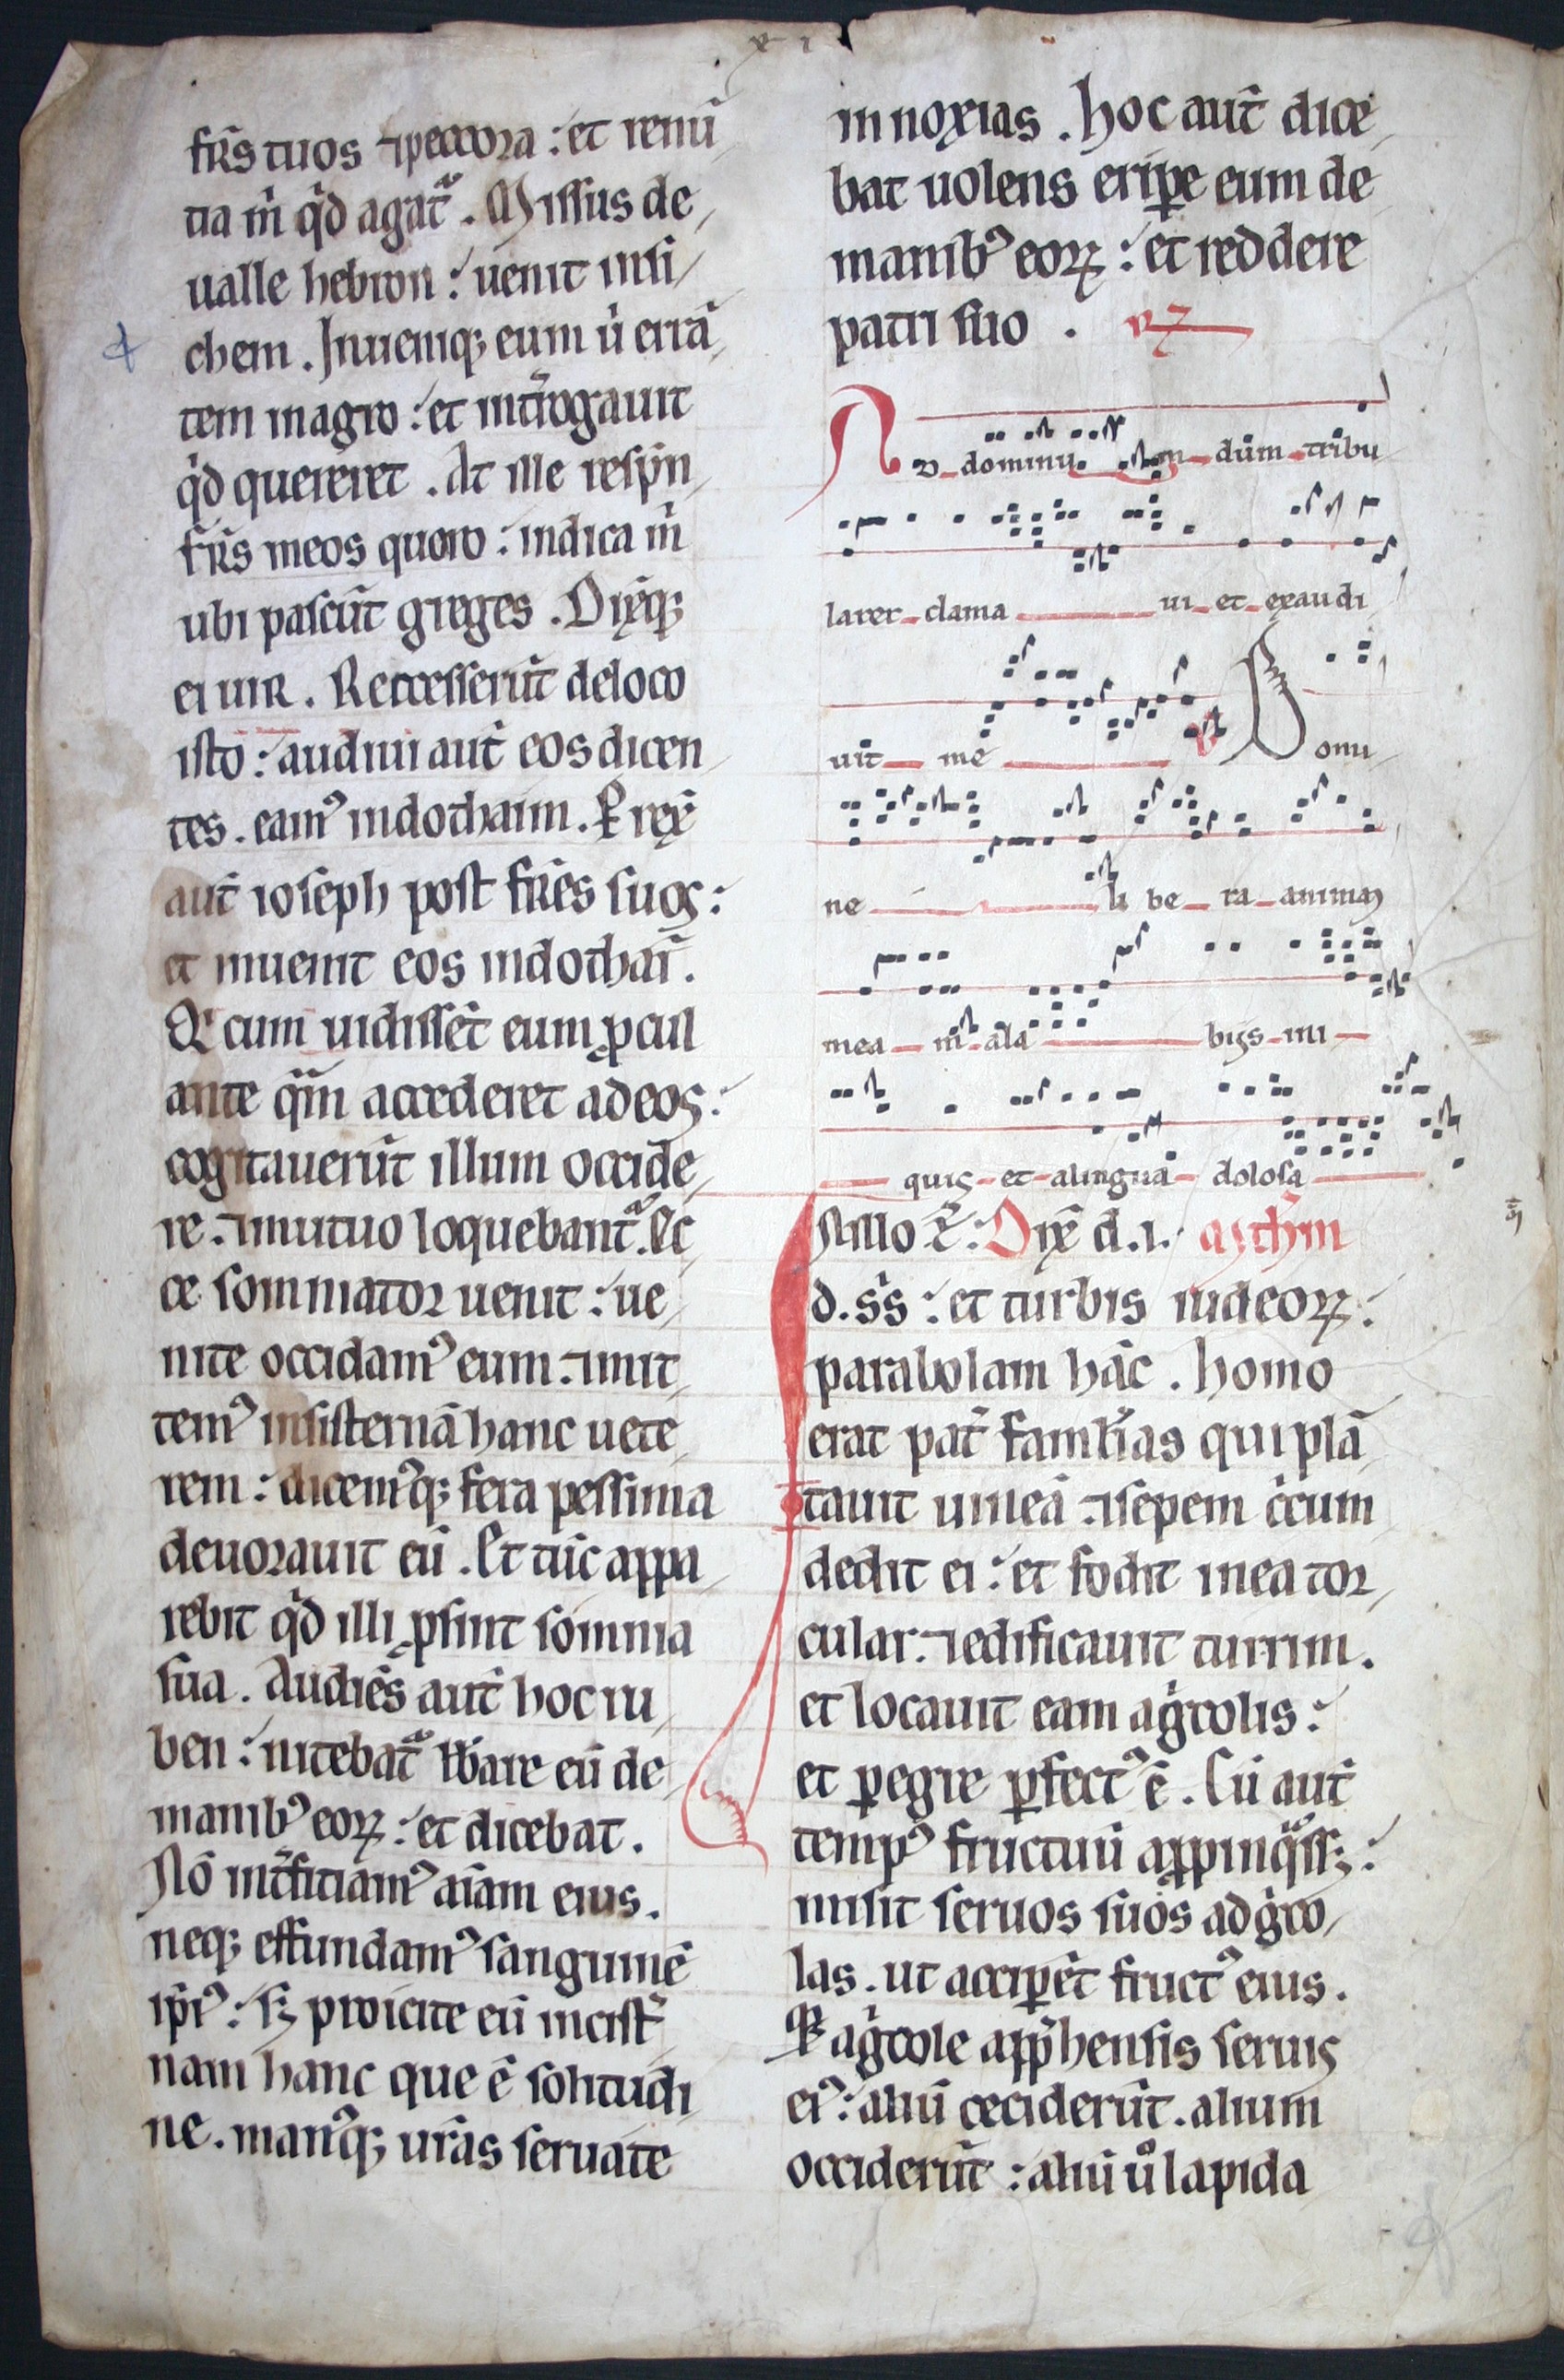 fr̄s tuos ⁊ pecora : et renū
tia m̄ qd̄ agat᷑ . Missus de
ualle hebron : uenit in si
chem . Inuenitq; eum uͥ errā
tem in agro : et int̄rogauit
qd̄ quereret . At ille respōn
fr̄s meos quero : indica m̄
ubi pascūt greges . Dixitq;
ei uir . Recesserūt de loco
isto : audiui aut̄ eos dicen
tes . eamꝰ in dothaim . P̄rex̄
aut̄ ioseph post fr̄es suos :
et inuenit eos in dothai᷑ .
Qi cum uidissēt eum ꝓcul
ante qͣm accederet ad eos :
cogitauerūt illum occide
re . ⁊ mutuo loquebant᷑ . Ec
ce somniator uenit : ue
nite occidamꝰ eum . ⁊ mit
temꝰ in sisternā hanc uete
rem : dicemꝰq; fera pessima
deuorauit eū . Et tūc appa
rebit qd̄ illi ꝓsint somnia
sua . Audiēs aut̄ hoc ru
ben : nitebat᷑ lib̄are eū de
manibꝰ eoꝝ : et dicebat .
Nō int̄fitiamꝰ aīam eius .
neq; effundamꝰ sanguinē
ipīꝰ : sꝫ proicite eū in cist᷑
nam hanc que ē solitudi
ne . manꝰq; ur̄as seruate
in noxias . hoc aut̄ dice
bat uolens eriꝑe eum de
manibꝰ eoꝝ : et reddere
patri suo . v̄
Ad dominum dum tribu
larer clama ui et exaudi
uit me V Domi
ne li be ra animaꝫ
mea m̄ a la biis ini
quis et a lingua dolosa
In illo t̄ . Dix̄ d . i . Mth̄m
d . s̄s : et turbis iudeoꝝ :
parabolam hāc . homo
erat pat̄ famil̄ias qui plā
tauit uineā ⁊ sepem cͥcum
dedit ei : et fodit in ea tor
cular . ⁊ edificauit turrim .
et locauit eam agͥcolis :
et ꝑegre ꝓfectꝰ ē . Cū aut̄
tempꝰ fructuū apꝓpinqͣssꝫ :
misit seruos suos ad agͥco
las . ut acciꝑēt fructꝰ eius .
Et agͥcole app̄hensis seruis
eiꝰ : aliū ceciderūt . alium
occiderūt : aliū uͦ lapida